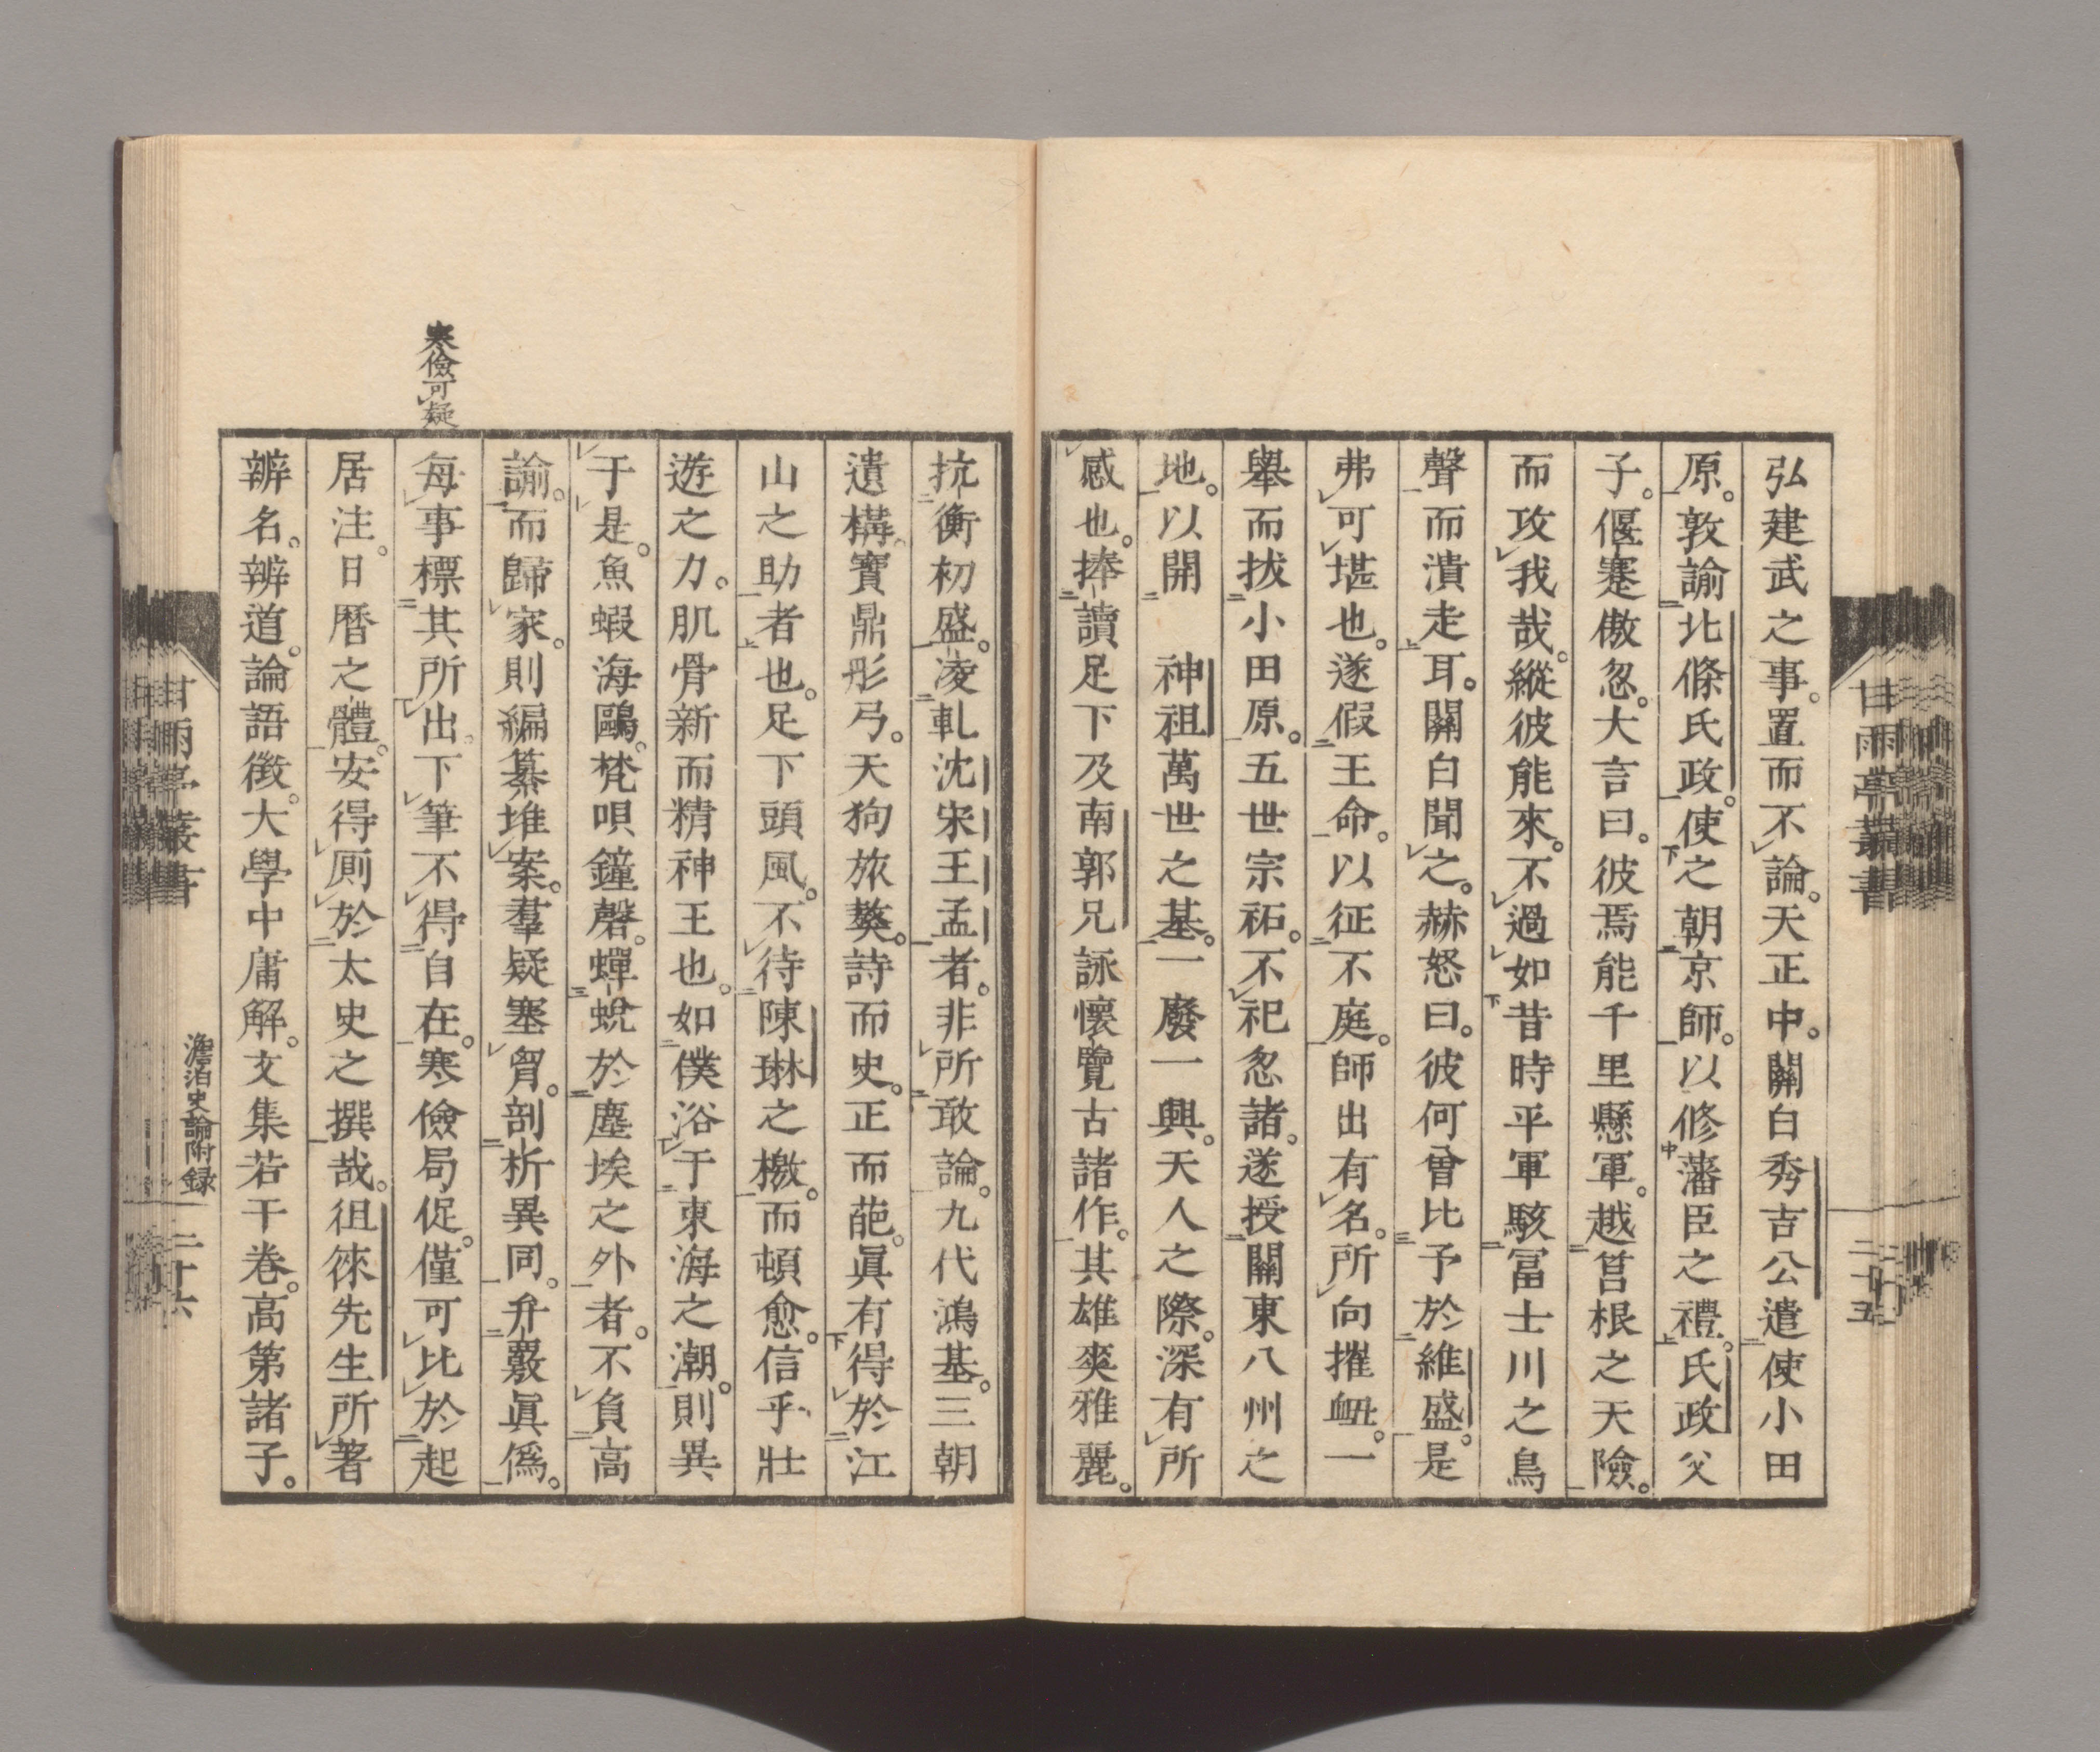 弘建武之事。置而不論。天正中。關白秀吉公遣使小田
原。敦諭北條氏政。使之朝京師。以修藩臣之禮。氏政父
子。偃蹇傲忽。大言曰。彼焉能千里懸軍。越筥根之天險。
而攻我哉。縱彼能來。不過如昔時平軍駭冨士川之鳥
聲而潰走耳。關白聞之。赫怒曰。彼何曾比予於維盛。是
弗可堪也。遂假王命。以征不庭。師出有名。所向摧衂。一
舉而拔小田原。五世宗祏。不祀忽諸。遂授關東八州之
地。以開 神祖萬世之基。一廢一興。天人之際。深有所
感也。捧讀足下及南郭兄詠懷覽古諸作。其雄爽雅麗。
甘雨亭叢書
二十五
抗衡初盛。凌軋沈宋王孟者。非所敢論。九代鴻基。三朝
遺構。寶鼎彤弓。天狗旅獒。詩而史。正而葩。眞有得於江
山之助者也。足下頭風。不待陳琳之檄。而頓愈。信乎壯
遊之力。肌骨新而精神王也。如僕浴于東海之潮。則異
于是。魚蝦海鷗。梵唄鐘磬。蟬蛻於塵埃之外者。不負高
諭。而歸家。則編纂堆案。羣疑塞胷。剖析異同。弁覈眞僞。
寒儉可疑
每事標其所出。下筆不得自在。寒儉局促。僅可比於起
居注。日曆之體。安得厠於太史之撰哉。徂徠先生所著
辨名。辨道。論語徵。大學中庸解。文集若干卷。高第諸子。
甘雨亭叢書
澹泊史論附録
二十六